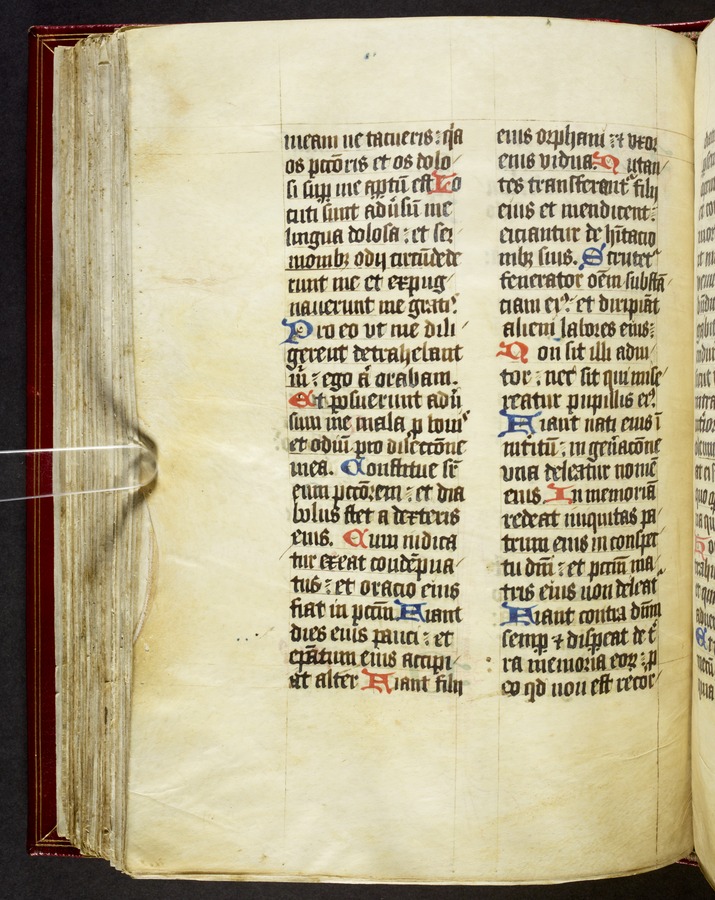 meam ne tacueris : q̄a
os pctōris et os dolo/
si sup̄ me aptū est Lo
cuti sunt adūsū me
lingua dolosa : et ser
monibꝫ odij circūdede
runt me et expug/
nauerunt me gratis
Pro eo vt me dili/
gerent detrahebant
m̄ : ego ā orabam.
Et posuerunt adū
sum me mala p bonis
et odiū pro dilectōne
mea. Constitue sr̄
eum pctōrem : et dia
bolus stet a dextris
eius. Cum iudica
tur exeat condēpna/
tus : et oracio eius
fiat in pctm̄ Fiant
dies eius pauci : et
ep̄atum eius accipi/
at alter Fiant filij
eius orphani : ⁊ vxor
eius vidua. Nutan/
tes transferantur filij
eius et mendicent :
eiciantur de hītacio
nibꝫ suis. Scrutetur
fenerator oēm substā/
ciam eiꝰ : et diripiāt
alieni labores eius :
Non sit illi adiu/
tor : nec sit qui mise/
reatur pupillis eiꝰ
Fiant nati eius ī
īteritū : in gen̄acōne
vna deleatur nomē
eius. In memoriā
redeat iniquitas pa/
trum eius in conspec
tu dn̄i : et pctm̄ ma/
tris eius non deleat᷑
Fiant contra dn̄m
semp ⁊ disp̄eat de t̄
ra memoria eoꝝ : p
eo qd non est recor/